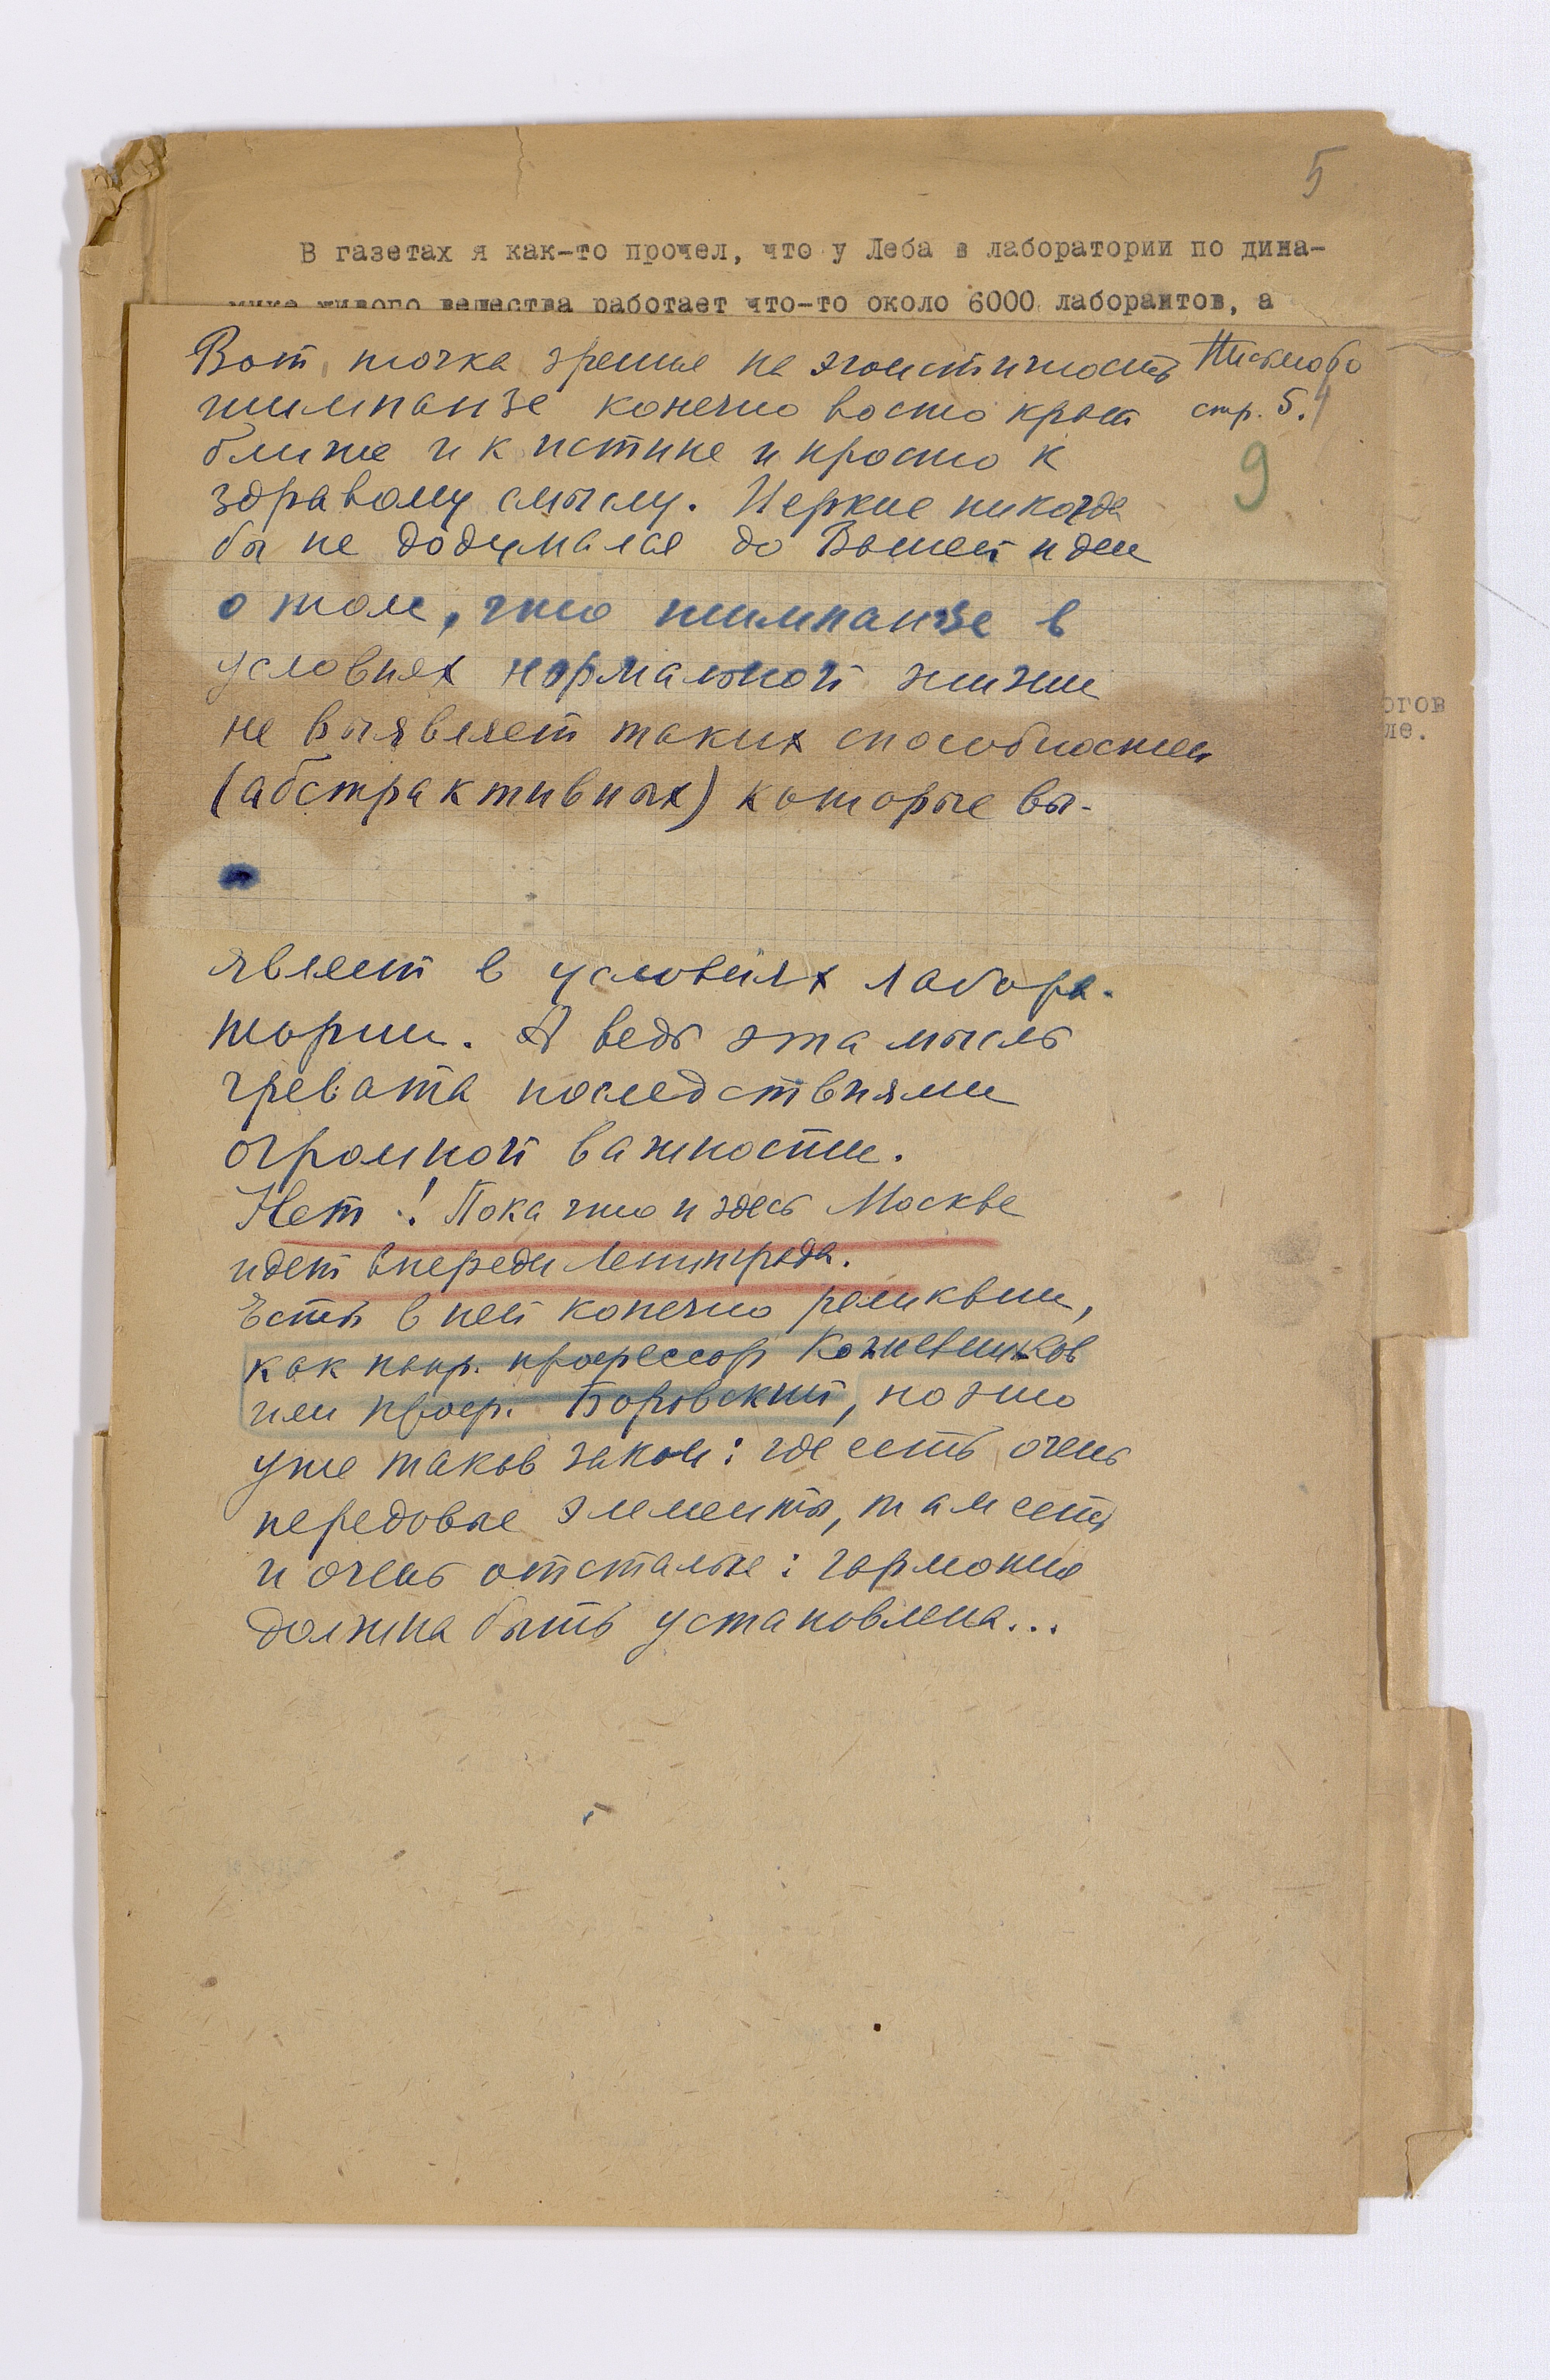 5
В газетах я как-то прочел, что у Леба в лаборатории по дина-
мике живого вещества работает что-то около 6000 лаборантов, а
Вот, точка зрения на эгоистичность
Письмо 60
стр. 5.
шимпанзе конечно во сто крат
ближе и к истине и просто к
9
здравому смыслу. Иеркис никогда
бы не додумался до Вашей идеи
о том, что шимпанзе в
условиях нормальной жизни
огов
не выявляет таких способностей
ле.
(абстрактивных) которые вы-
являет в условиях лабора-
тории. А ведь эта мысль
чревата последствиями
огромной важности.
Нет! Пока что и здесь Москва
идет впереди Ленинграда.
Есть в ней конечно реликвии,
как напр. профессор Кожевников
или проф. Боровский, но это
уже таков закон: где есть очень
передовые элементы, там есть
и очень отсталые: гармония
должна быть установлена...